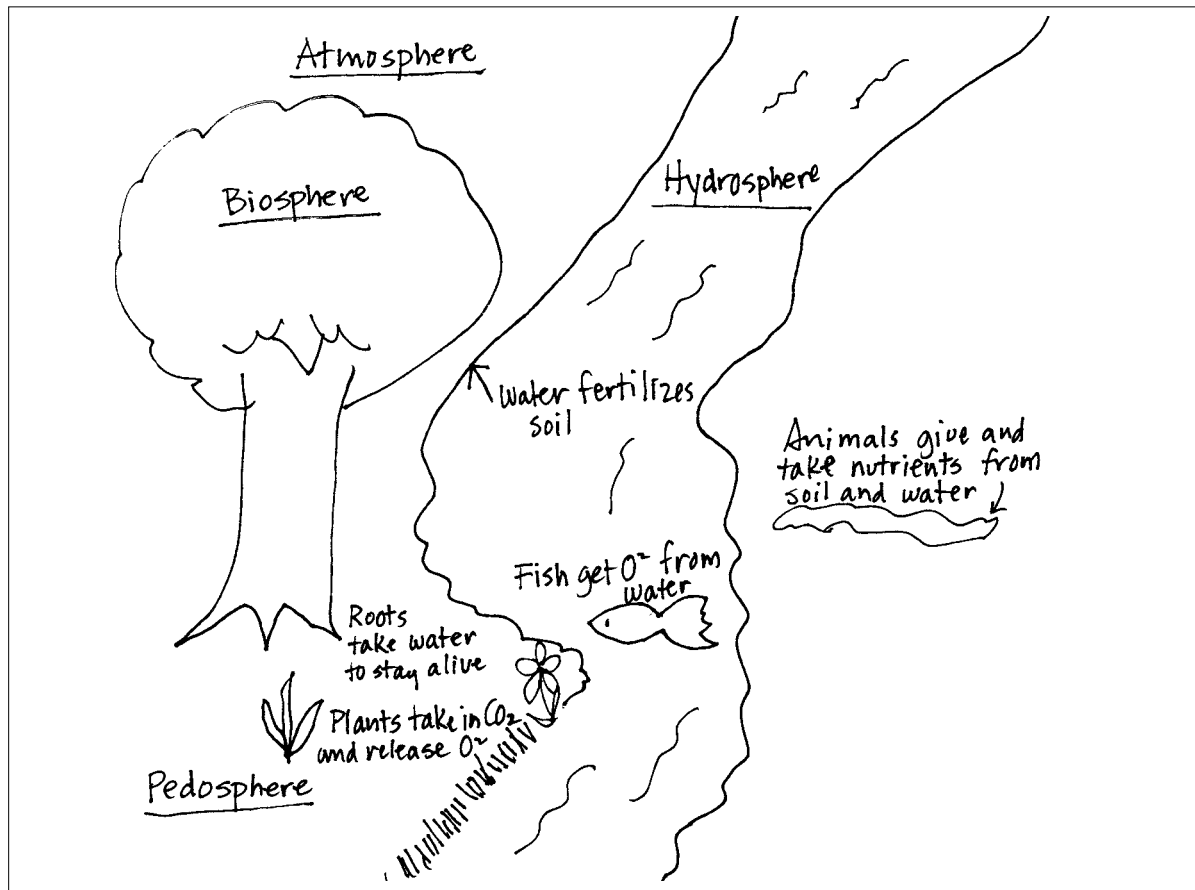 Atmosphere
Biosphere
Hydrosphere
Water fertilizes
soil
Animals give and
take nutrients from
soil and water
Fish get O² from
water
Roots
take water
to stay alive
Plants take in CO₂
and release O²
Pedosphere